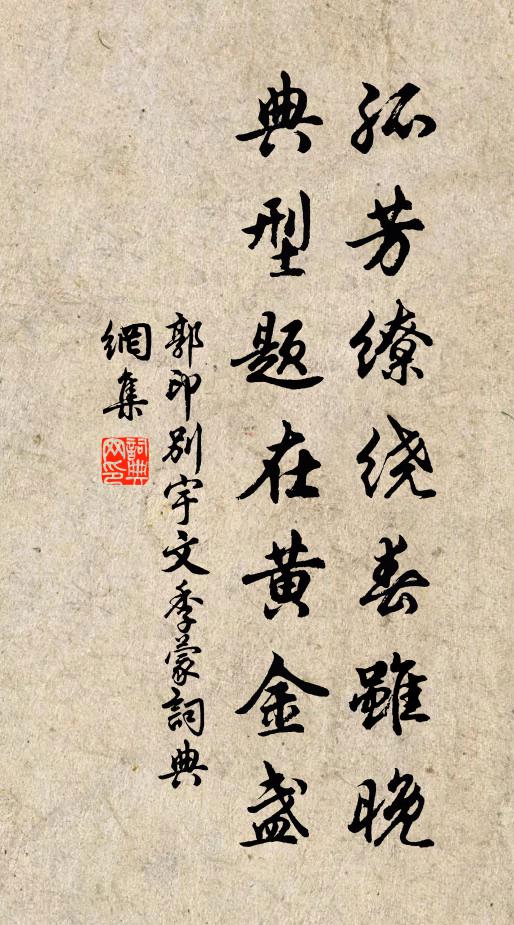 孤芳缭绕春雖晚
典型题在黄金盏
郭印别宇文季蒙詞典
網集
詞典网印